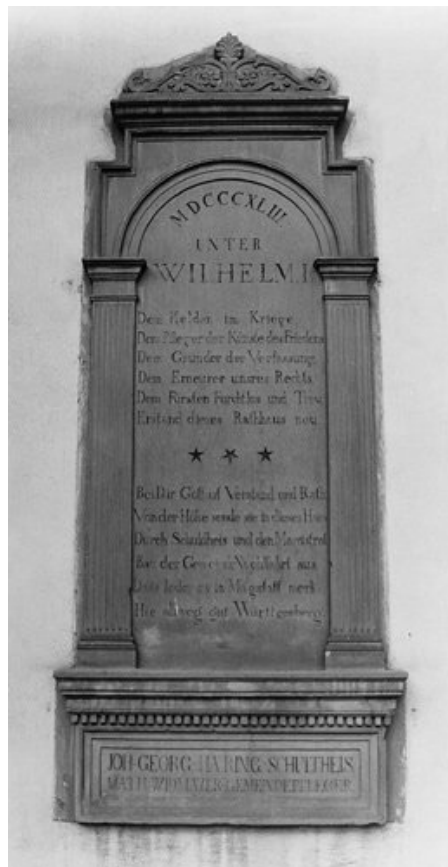 MDCCCXLIII.
UNTER
WILHELM I
Dem Helden im Kriege,
Dem Pfleger der Künste des Friedens
Dem Gründer der Verfassung,
Dem Erneurer unsres Rechts
Dem Fürsten Furchtlos und Treu
Erstand dieses Rathhaus neu.
Bei Dir Gott ist Verstand und Rath
Von der Höhe sende sie in dieses Haus
Durch Schuldheis und den Magistrat
der Gemeinde Wohlfahrt aus
Dass Jeder es in Magstatt merk
Hie allweg gut Württemberg.
JOH. GEORG HARING SCHULTHEIS
MATH. WIDMAIER GEMEINDEPFLEGER.